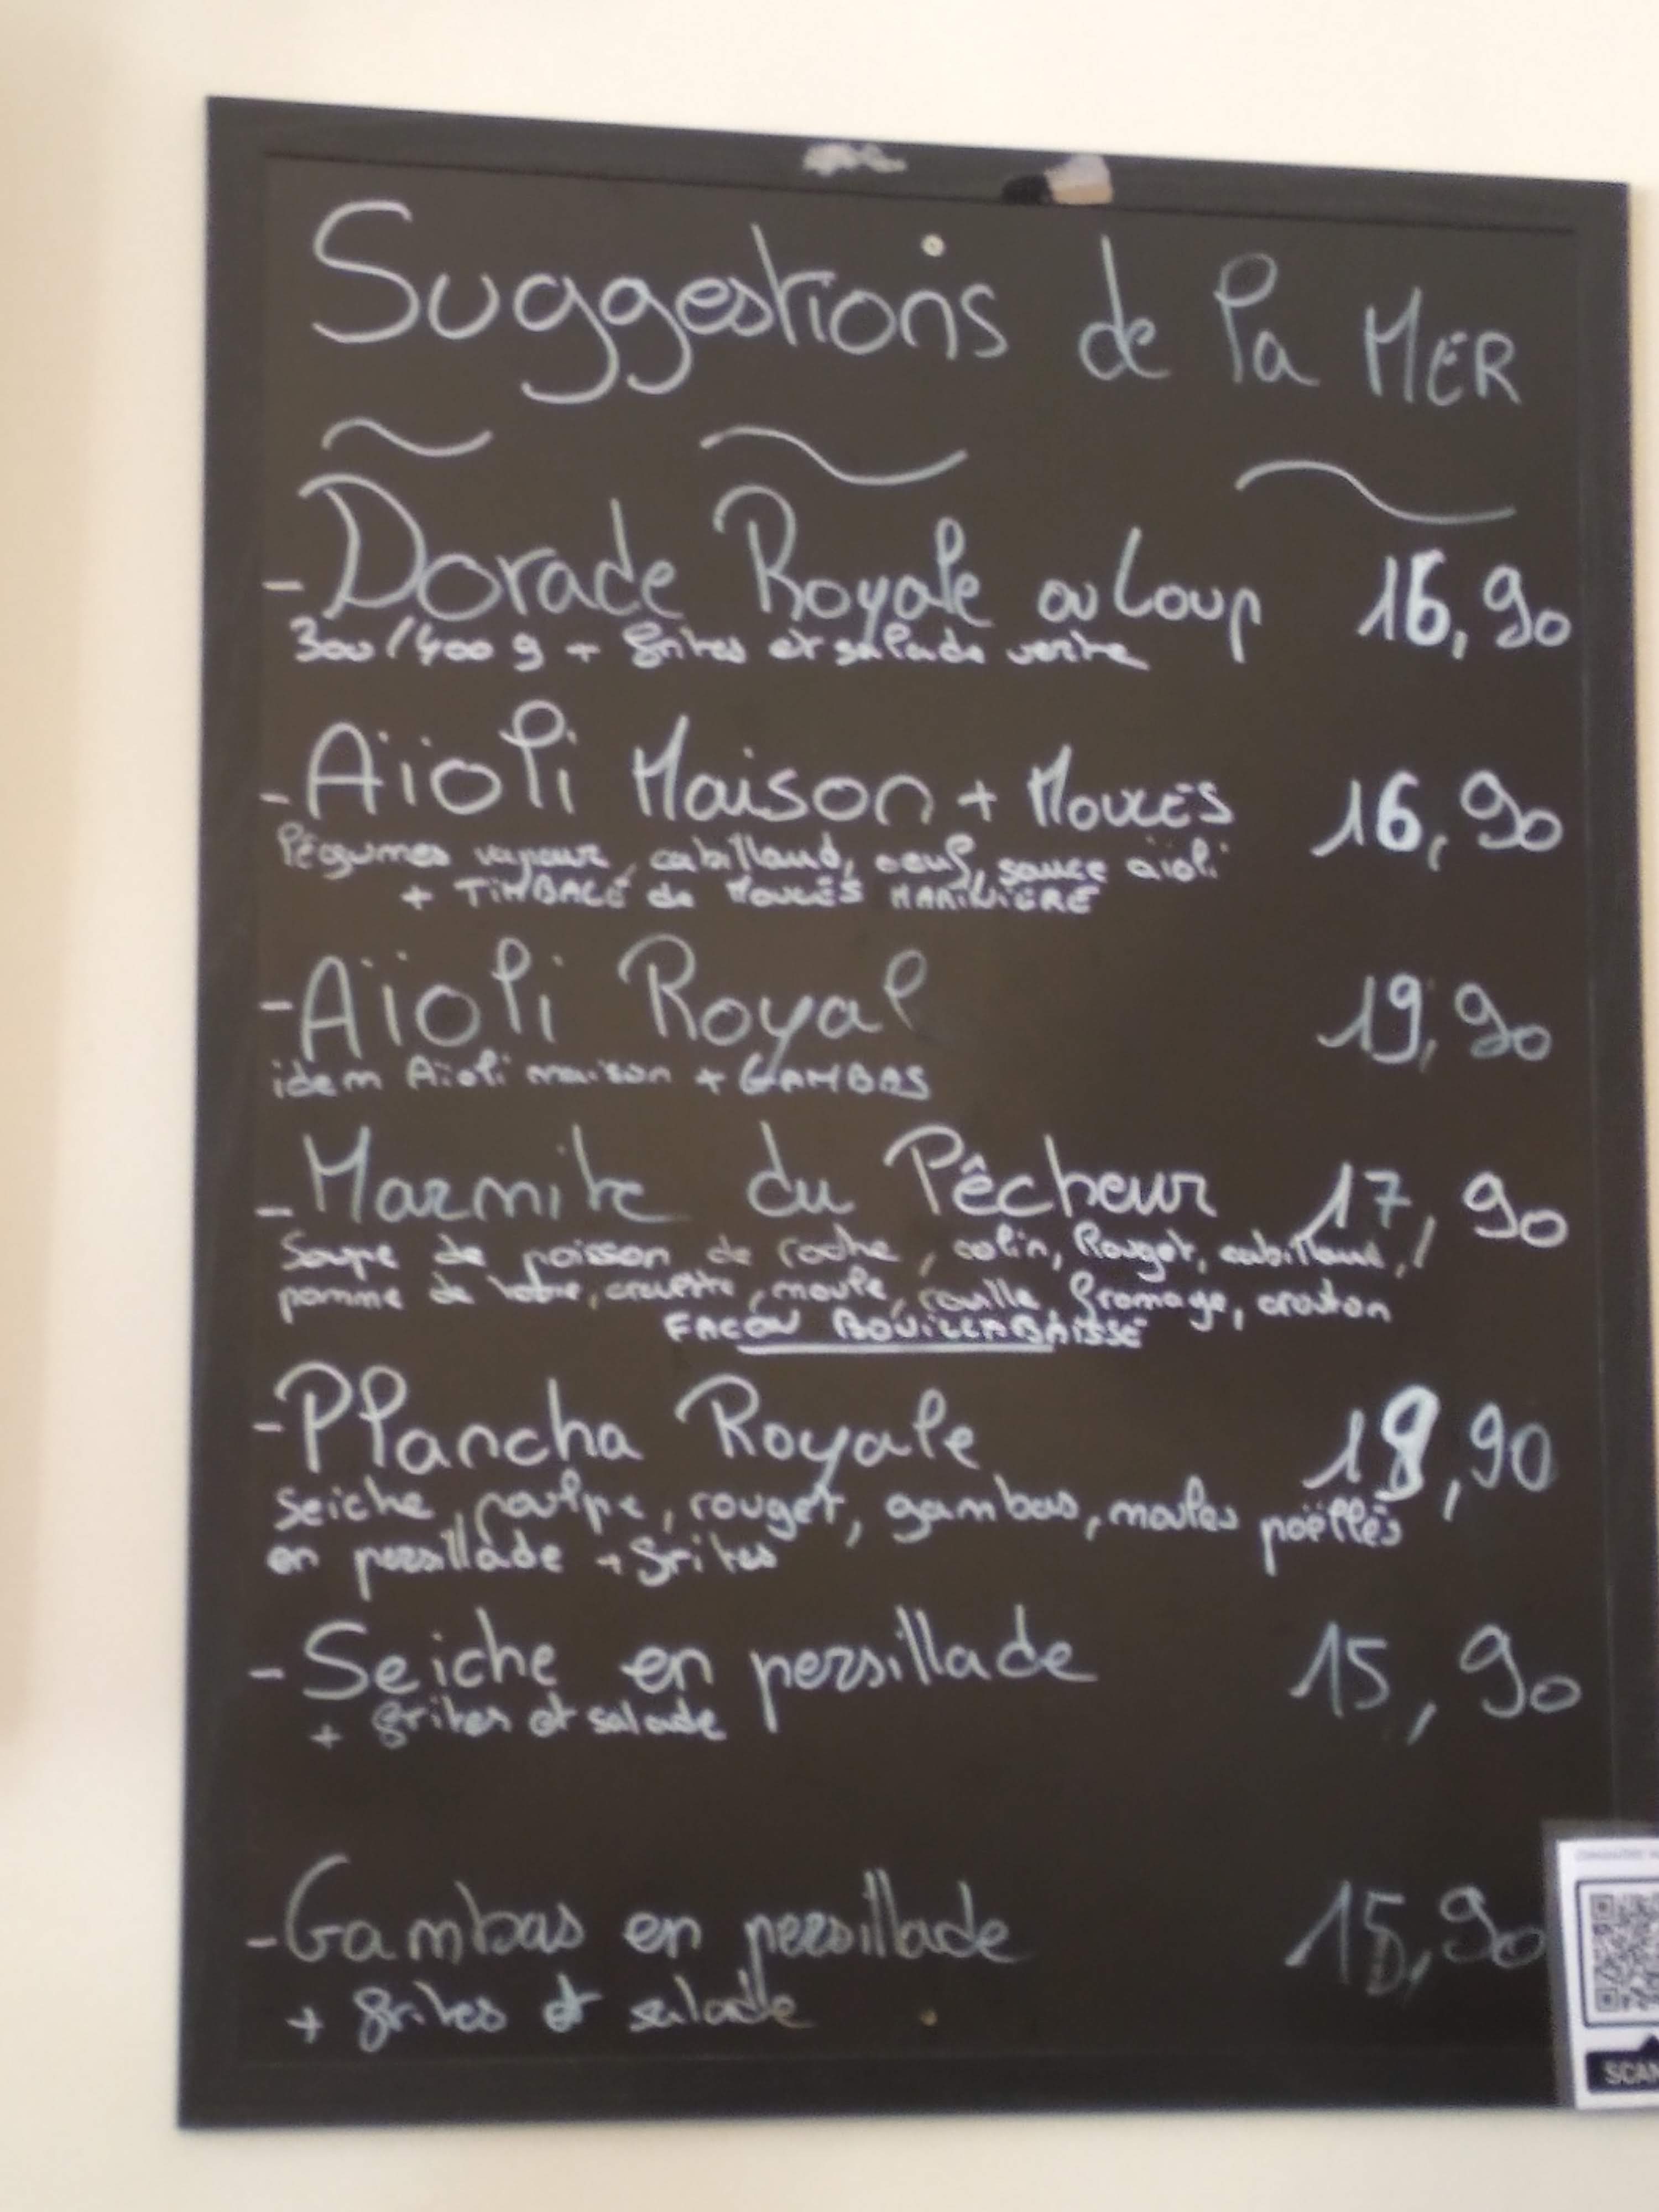 Suggestions de la MER
- Dorade Royale ou Loup 16,90
300/400 g + frites et salade verte
- Aïoli Maison + MOULES 16,90
légumes vapeur, cabillaud, oeuf, sauce aïoli
+ TIMBALE de MOULES MARINIÈRE
- Aïoli Royal 19,90
idem Aïoli maison + GAMBAS
- Marmite du Pêcheur 17,90
Soupe de poisson de roche, colin, Rouget, cabillaud,
pomme de terre, crevette, moule, rouille, fromage, crouton
FACON BOUILLABAISSE
- Plancha Royale 18,90
Seiche, poulpe, rouget, gambas, moules poëllés
en persillade + frites
- Seiche en persillade 15,90
+ frites et salade
- Gambas en persillade 15,90
+ frites et salade
SCAN